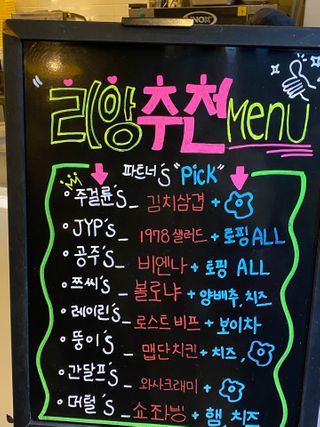 "리앙 추천 Menu
파트너's "Pick"
• 주걸륜's _ 김치삼겹 +
• JYP's _ 1978 샐러드 + 토핑 ALL
• 공주's _ 비엔나 + 토핑 ALL
• 쯔씨's _ 볼로냐 + 양배추, 치즈
• 레이린's _ 로스트 비프 + 보이차
• 뚱이's _ 맵단치킨 + 치즈,
• 간달프's _ 와사크래미 +
• 머털's _ 쇼조빙 + 햄, 치즈